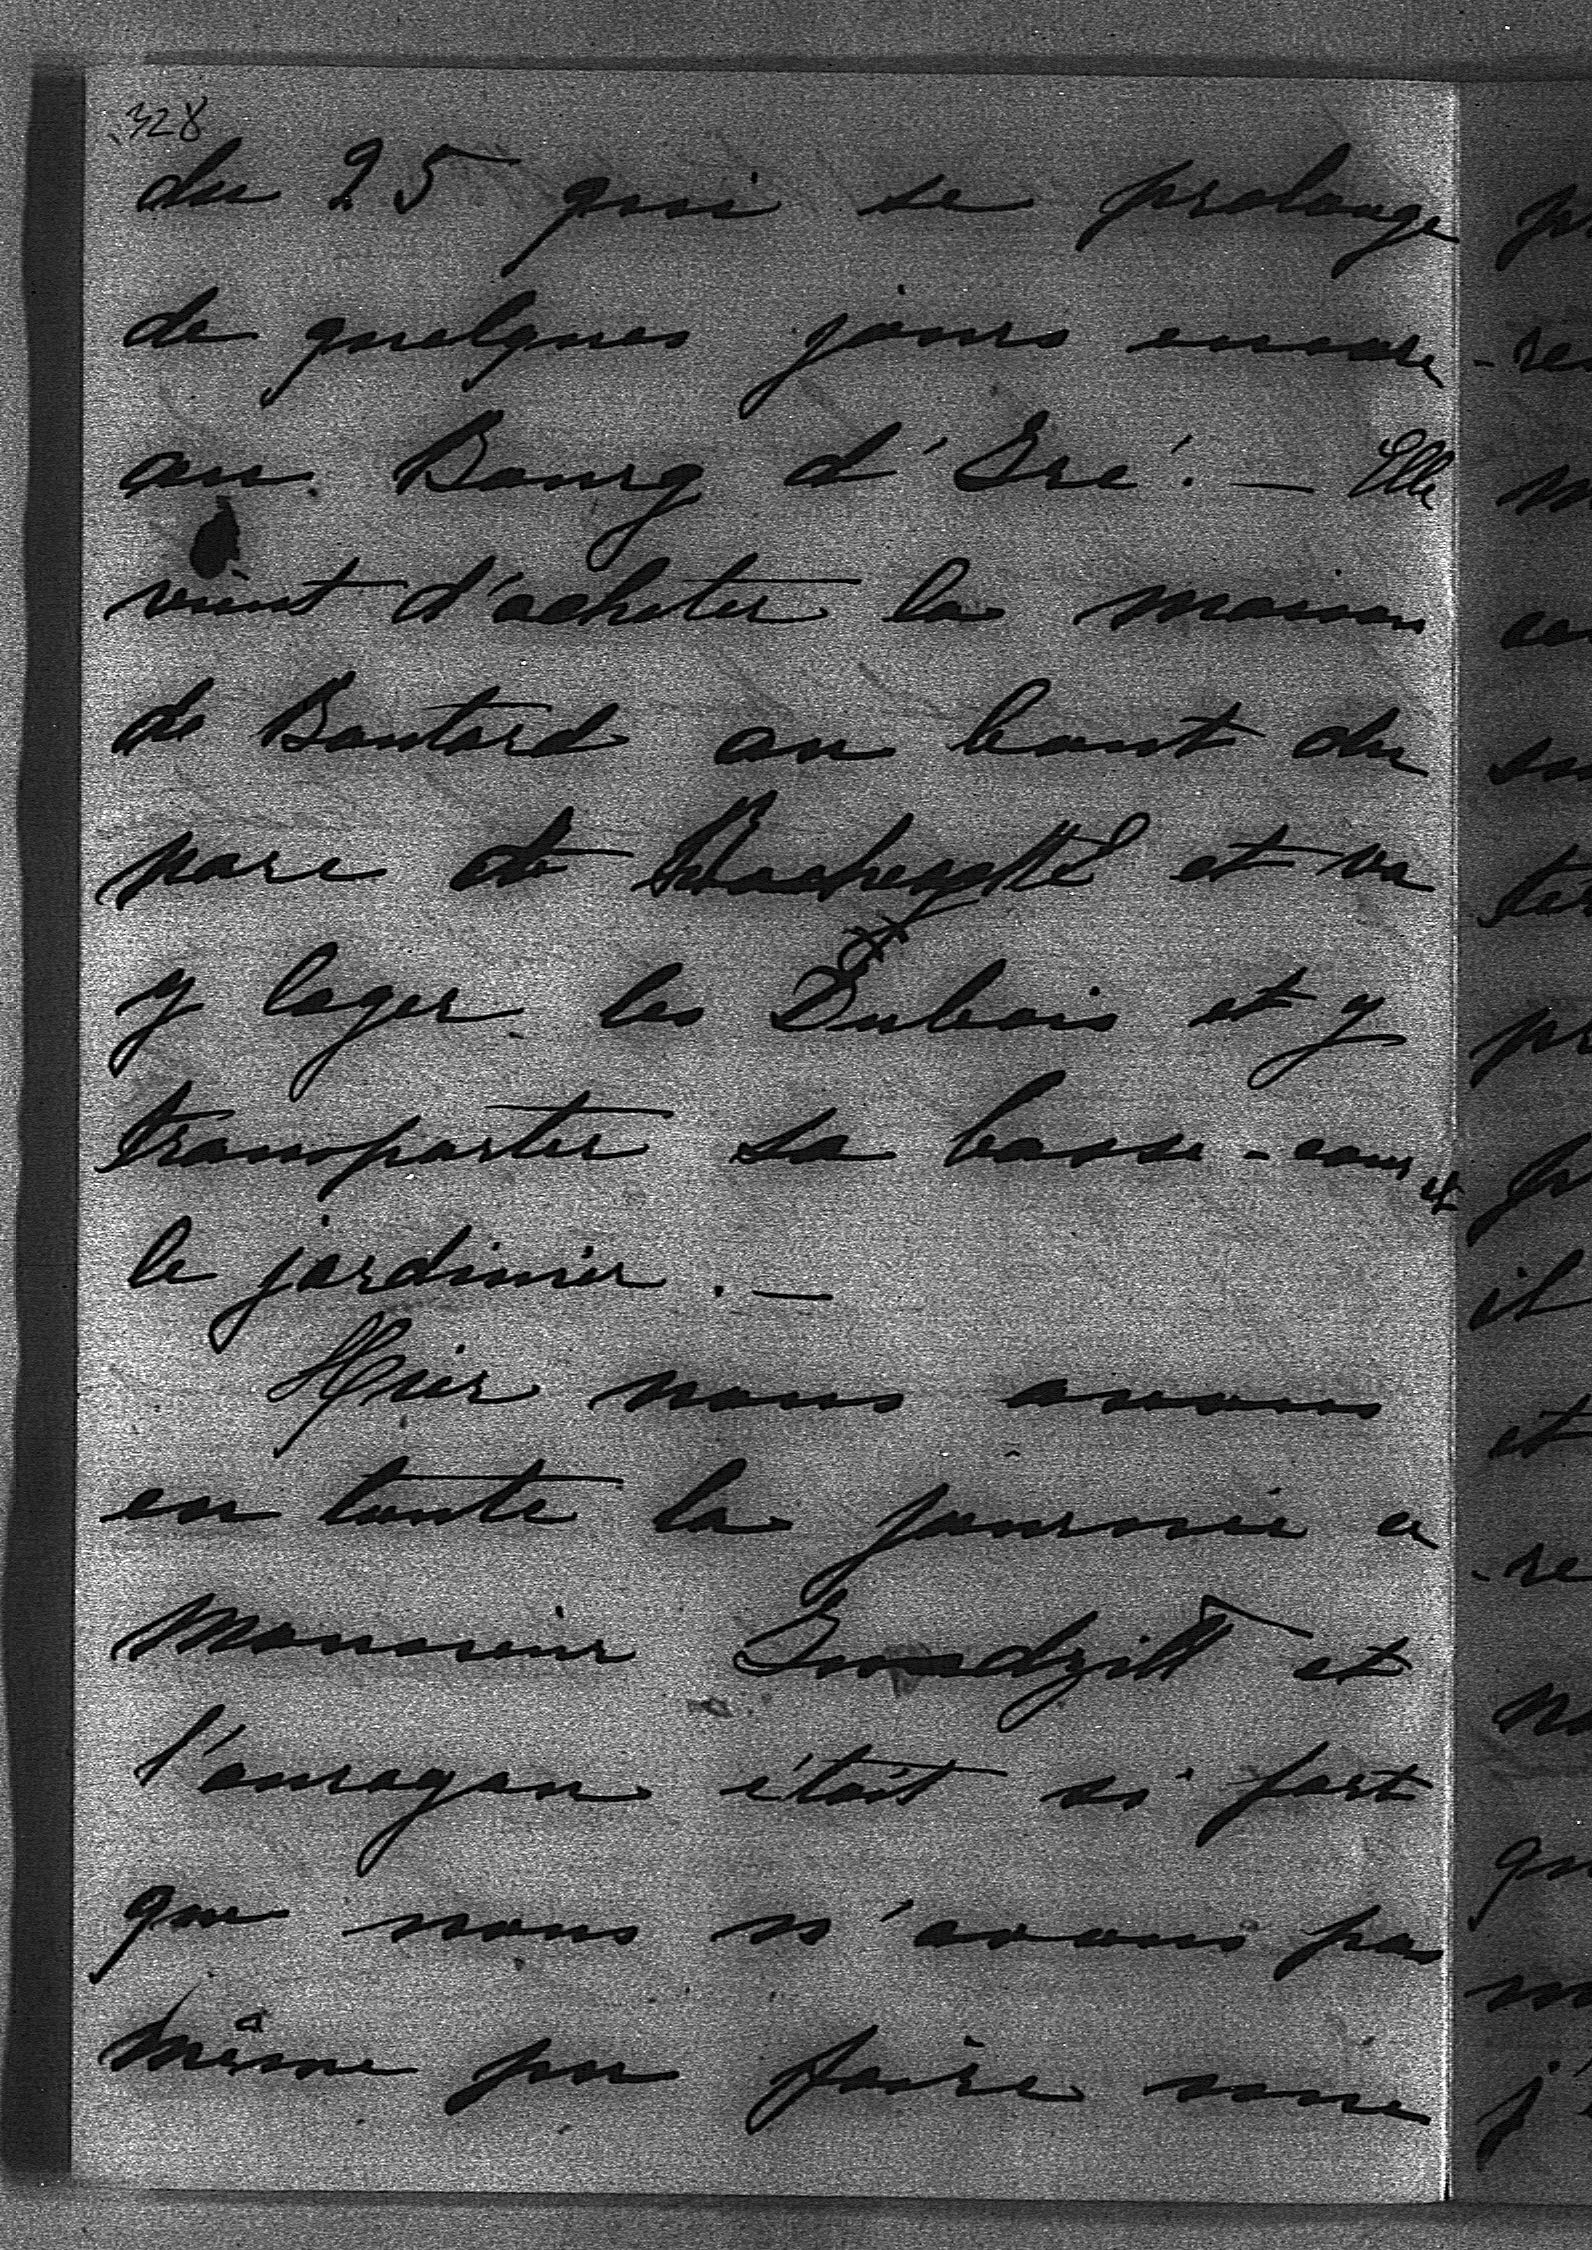 328
du 25 qui se prolonge
de quelques jours encore
au Bourg d'Iré. — Elle
vient d'acheter la maison
de Boutard au bout du
parc de et va
y loger les Dubois et y
transporter sa basse-cour et
le jardinier. —
Hier nous avons
eu toute la journée ce
monsieur et
l'ouragan était si fort
que nous n'avons pas
même pu faire une